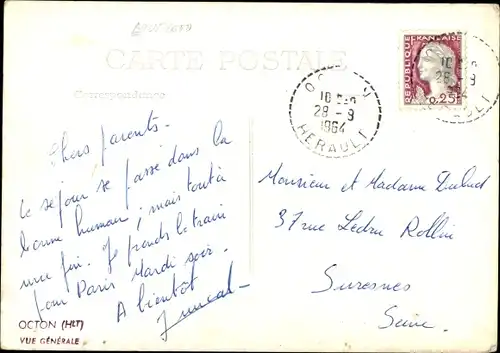 CARTE POSTALE
Correspondance
REPUBLIQUE FRANÇAISE
0,25
OCTON
10 H
28 - 9
1964
HERAULT
10 H
28 - 9
Chers parents.
Le séjour se passe dans la
bonne humeur ; mais tout à
une fin. Je prends le train
pour Paris Mardi soir.
A bientot
Monsieur et Madame Dubud
37 rue Ledru Rollin
Suresnes
Seine.
OCTON (HLT)
VUE GÉNÉRALE